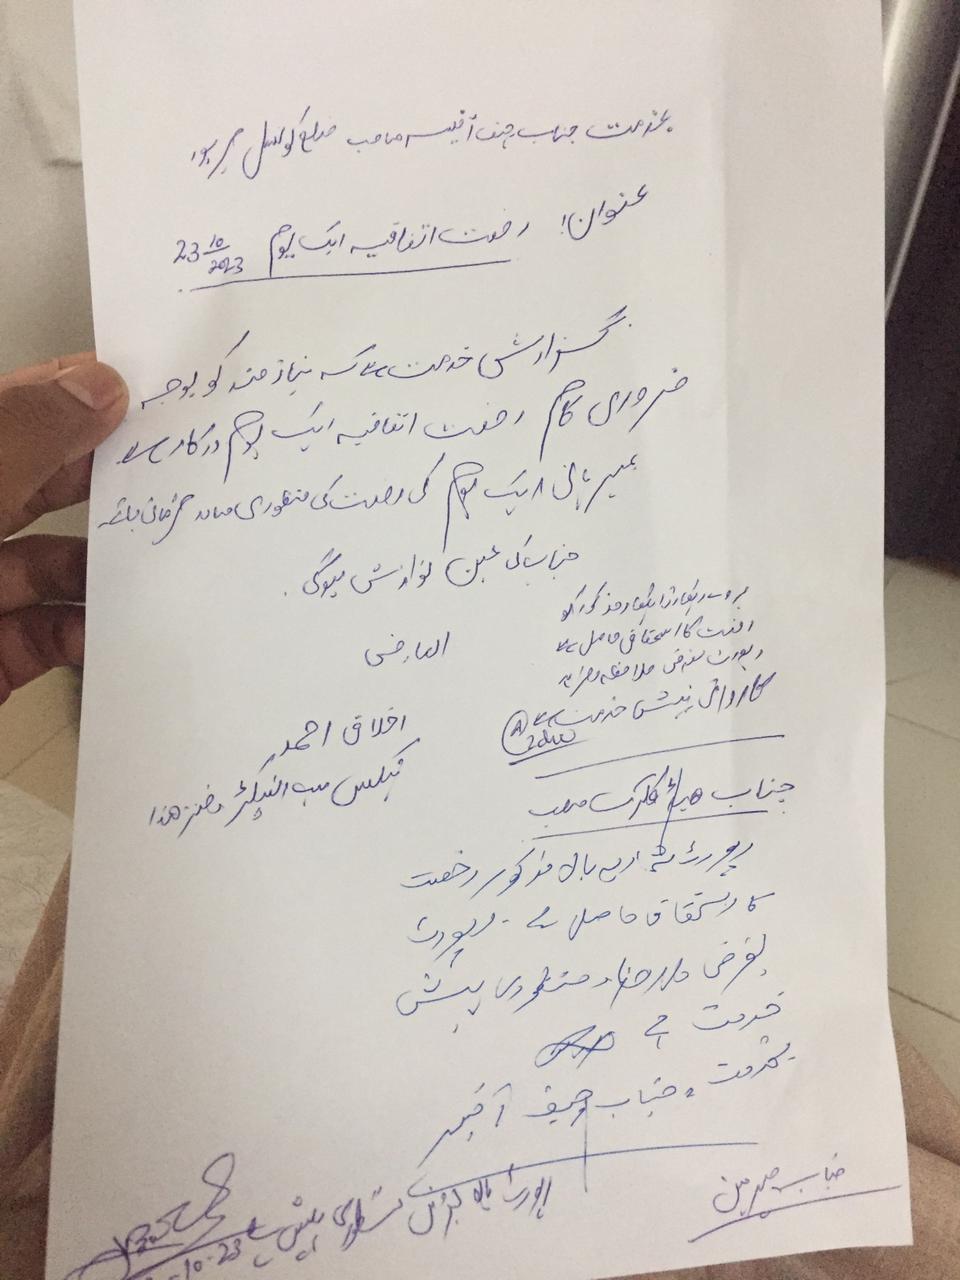 بخدمت جناب چیف آفیسر صاحب ضلع کونسل میرپور
عنوان! رخصت اتفاقیہ ایک یوم 23 10/2023
گزارش خدمت ہے کہ نیاز مند کو بوجہ
ضروری کام رخصت اتفاقیہ ایک یوم درکار ہے
مہربانی ایک یوم کی رخصت کی منظوری صادر فرمائی جائے
جناب کی عین نوازش ہوگی.
العارض
اخلاق احمد
ٹیکس سب انسپکٹر دفتر ھذا
رخصت کا استحقاق حاصل ہے
رپورٹ بغرض ملاحظہ
کاروائی پیش خدمت ہے
جناب ھیڈ کلرک صاحب
رپورٹ بالا مذکور رخصت
کا استحقاق حاصل ہے - رپورٹ
بغرض ملاحظہ و منظوری پیش
خدمت ہے
بخدمت جناب چیف آفیسر
رپورٹ بالا بغرض منظوری پیش ہے
10-23
جناب